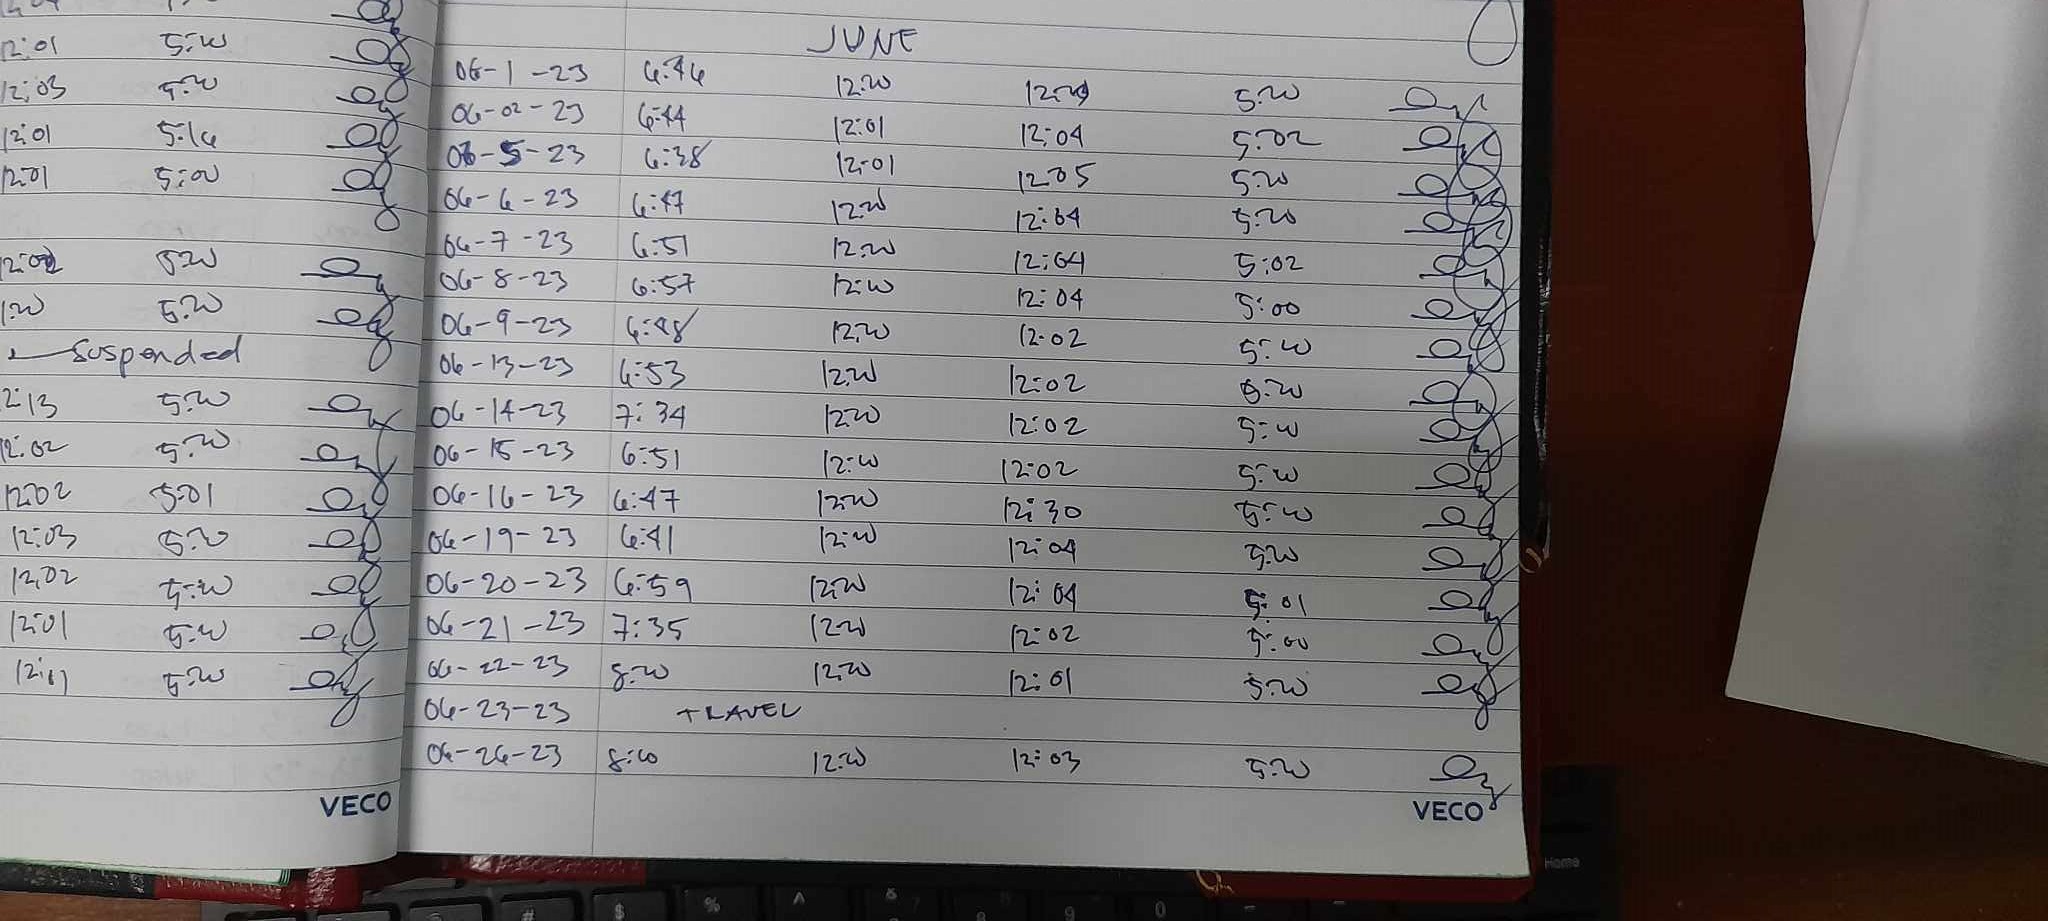 12:01 5:00
12:03 5:00
12:01 5:16
12:01 5:00
12:02 5:00
1:00 5:00
Suspended
2:13 5:00
12:02 5:00
12:02 5:01
12:03 5:00
12:02 5:00
12:01 5:00
12:11 5:00
VECO
JUNE
06-1-23 6:46 12:00 5:00
06-02-23 6:44 12:01 12:04 5:02
06-5-23 6:38 12:01 12:05 5:00
06-6-23 6:47 12:00 12:04 5:00
06-7-23 6:51 12:00 12:04 5:02
06-8-23 6:57 12:00 12:04 5:00
06-9-23 6:48 12:00 12:02 5:00
06-13-23 6:53 12:00 12:02 5:00
06-14-23 7:34 12:00 12:02 5:00
06-15-23 6:51 12:00 12:02 5:00
06-16-23 6:47 12:00 12:30 5:00
06-19-23 6:41 12:00 12:04 5:00
06-20-23 6:59 12:00 12:04 5:01
06-21-23 7:35 12:00 12:02 5:00
06-22-23 8:00 12:00 12:01 5:00
06-23-23 TRAVEL
06-26-23 8:00 12:00 12:03 5:00
VECO
Home